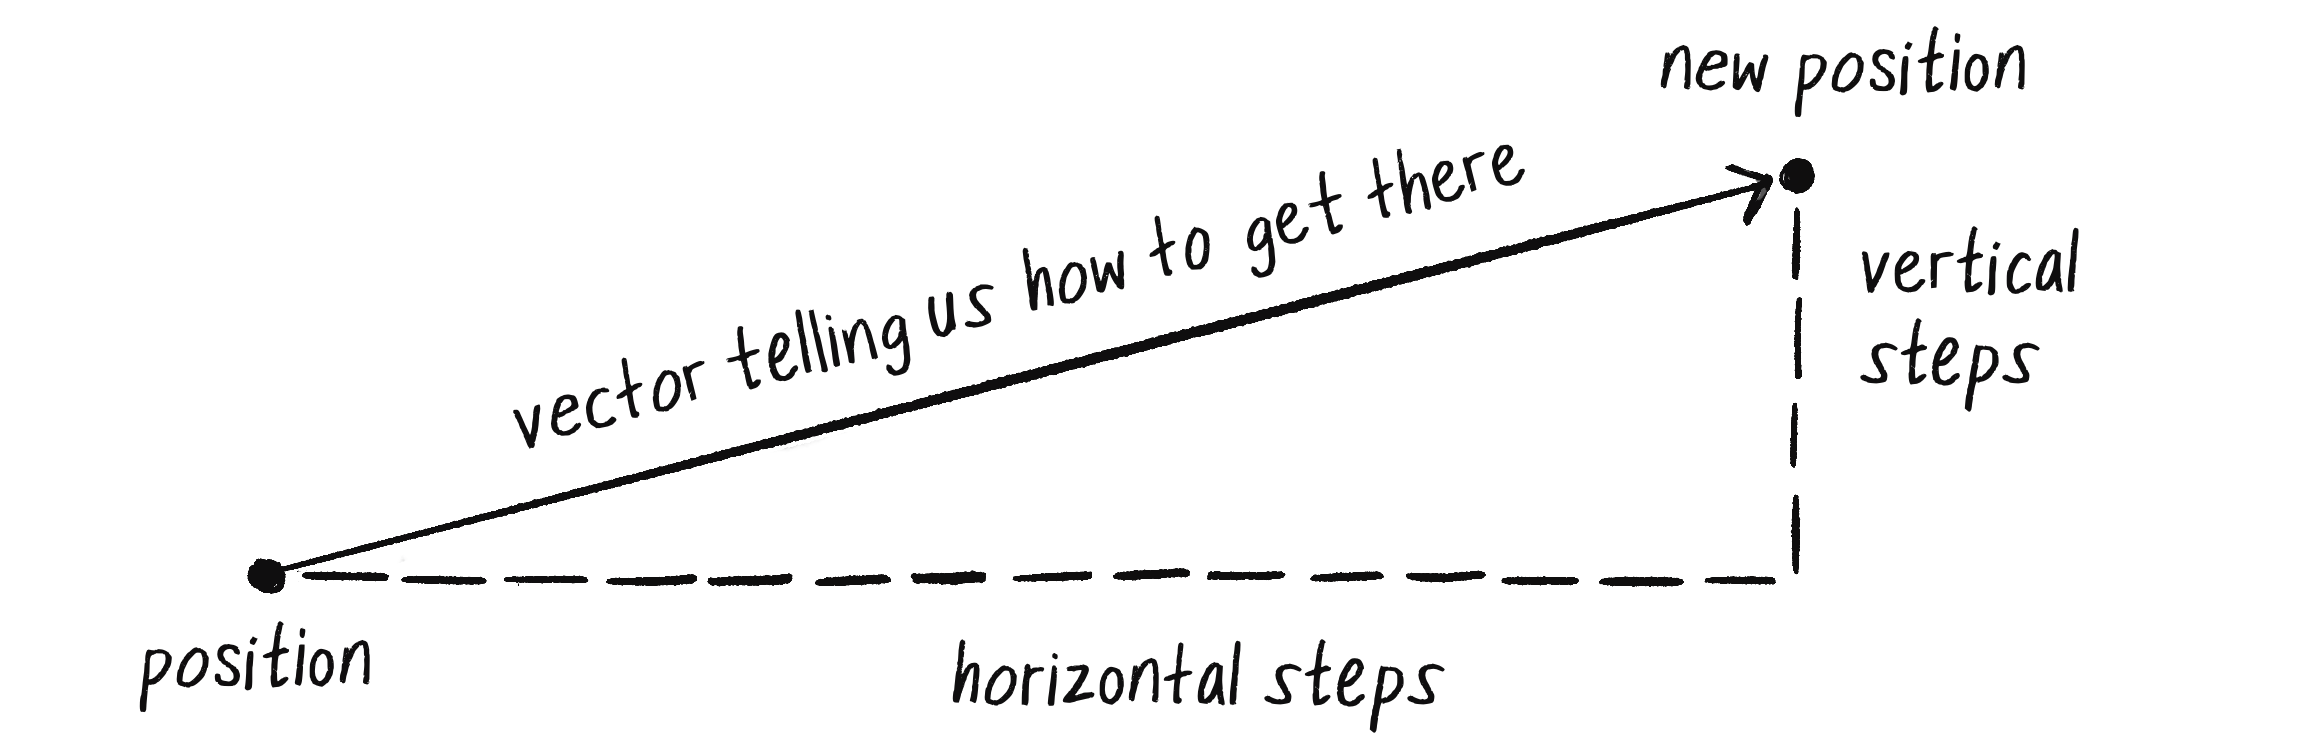 new position
vector telling us how to get there
vertical
steps
position
horizontal steps